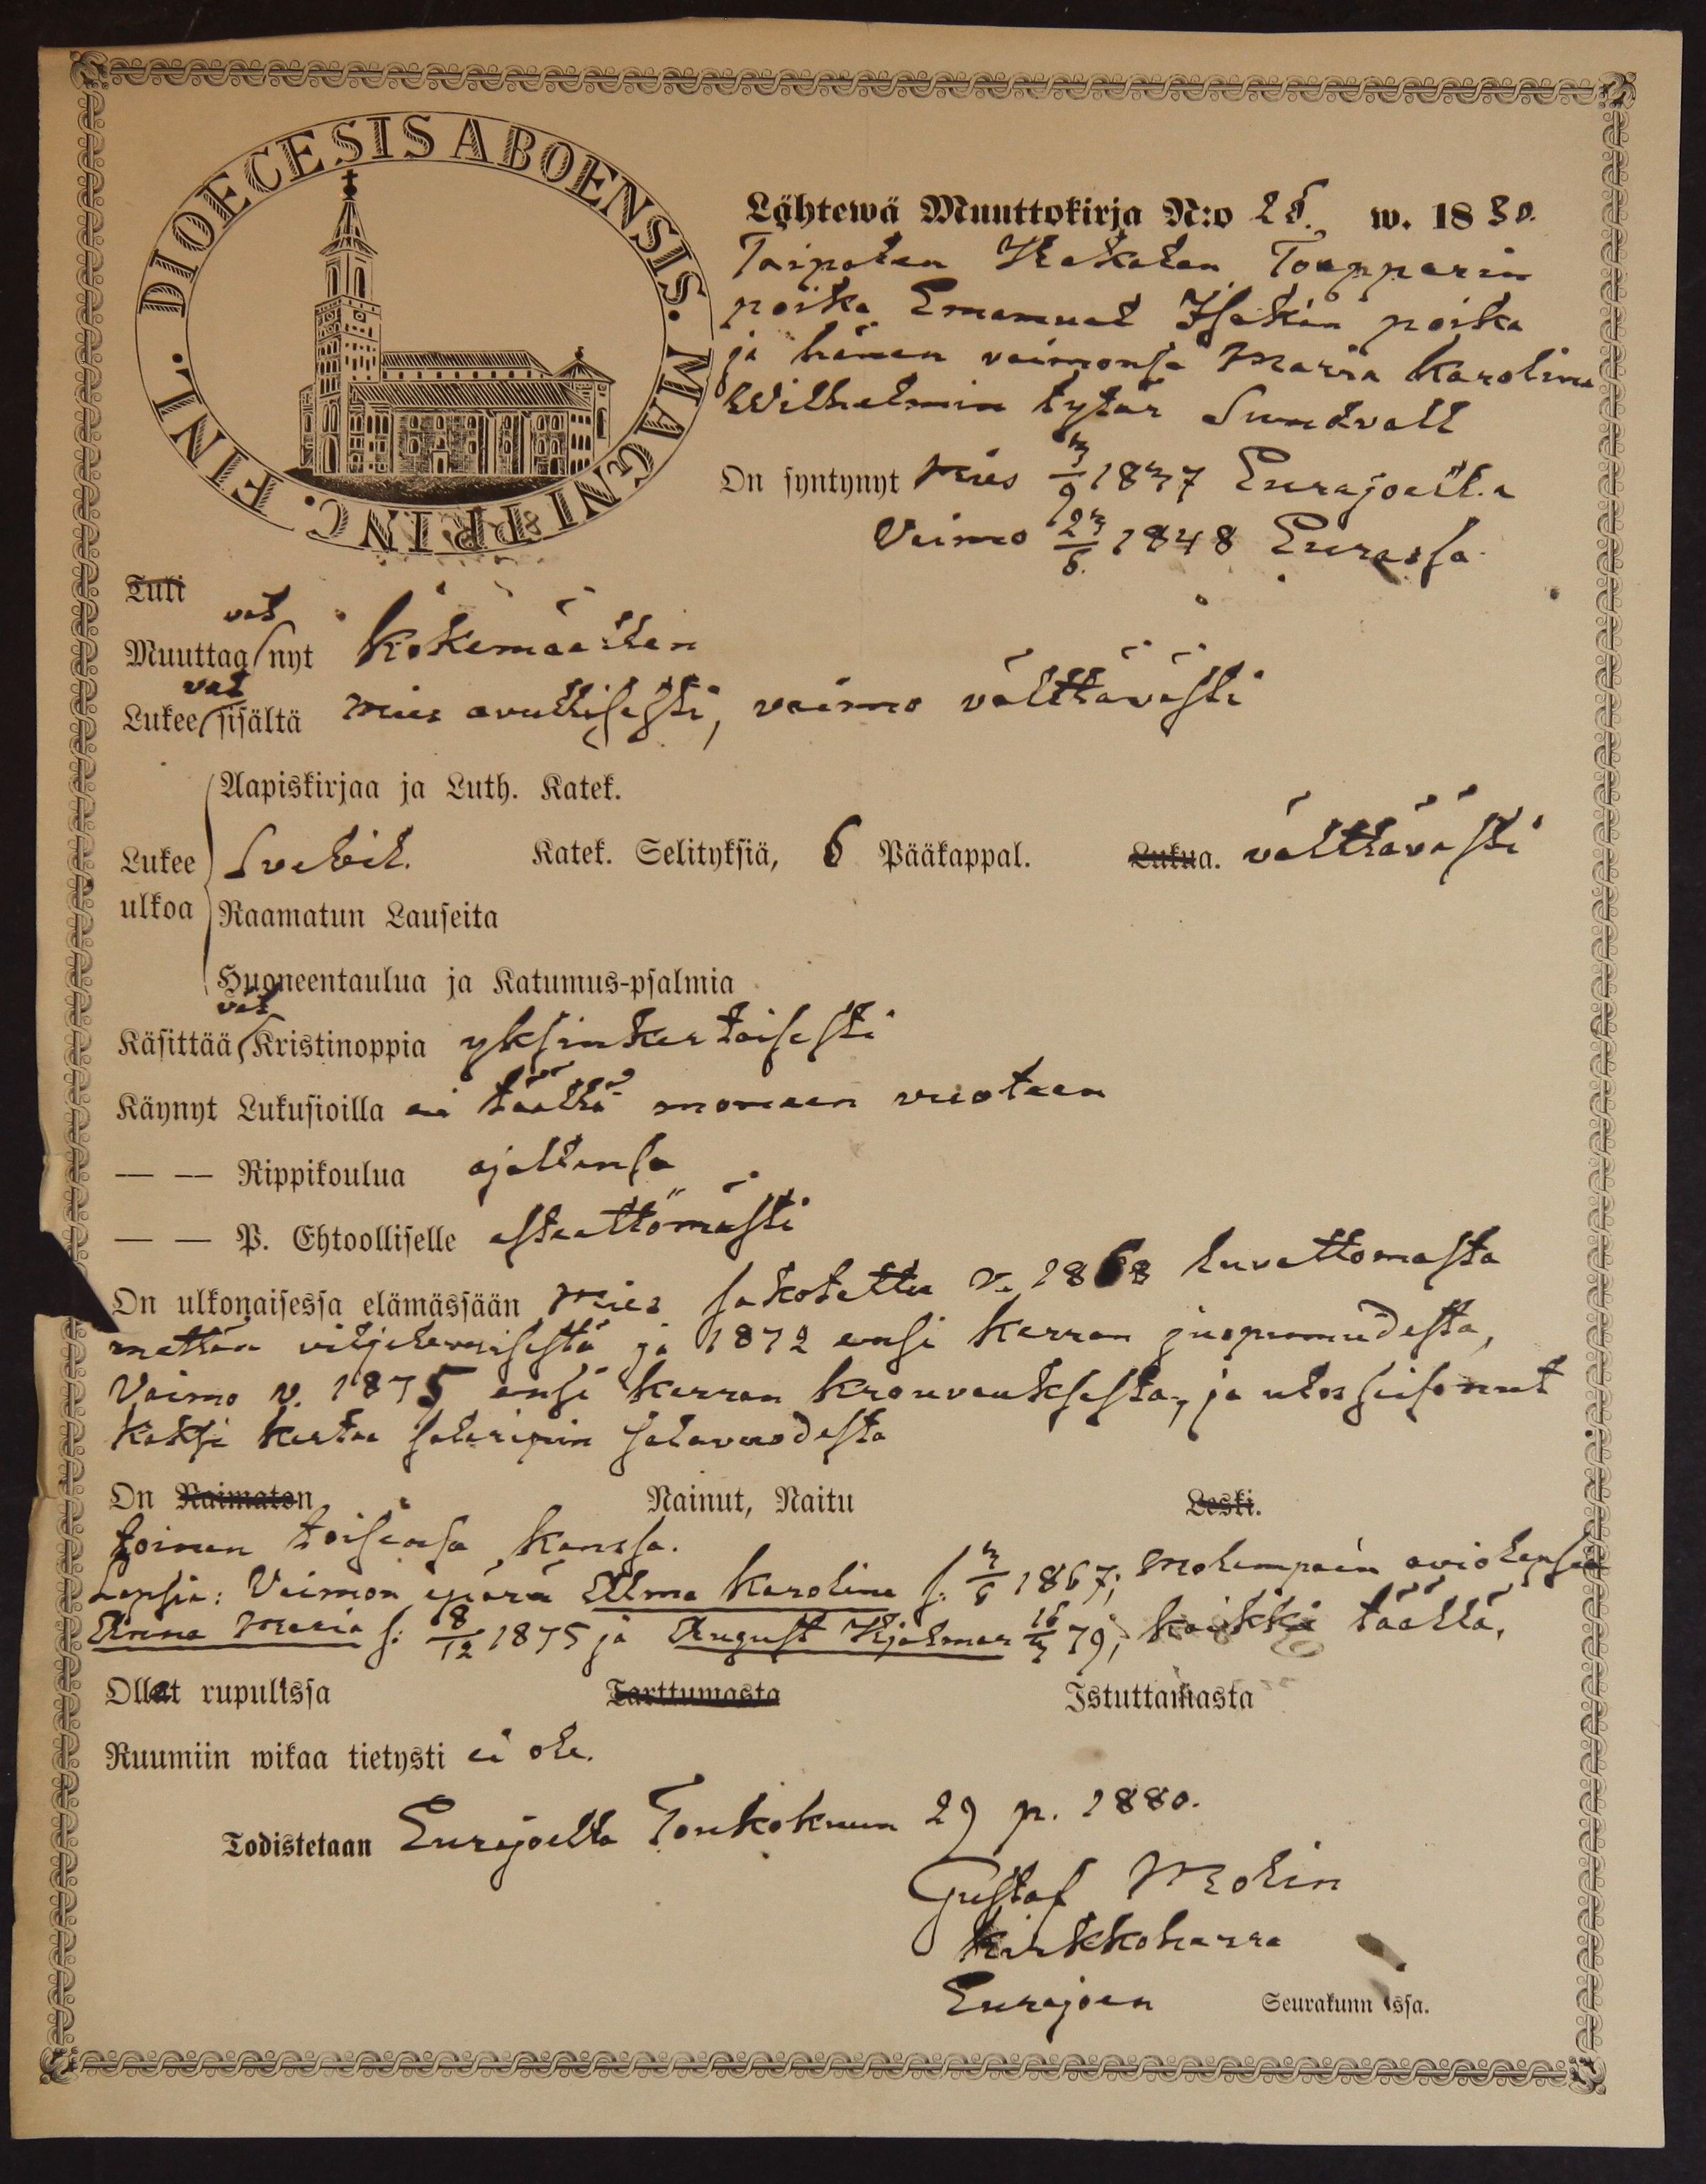 DIOECESIS ABOENSIS. MAGNI PRINC. FINL.
Lähtewä Muuttokirja N:o 25. w. 1880.
Taipalen Kekolan Torpparin
poika Emanuel Isakin poika
ja hänen vaimonsa Maria Karolina
Wilhelmin tytär Sundvall
On syntynyt Mies 3/9 1837 Eurajoella
Vaimo 23/6 1848 Eurassa.
Tuli
Muuttaa vat nyt Kokemäellen
Lukee vat sisältä mies avullisesti, vaimo välttävästi
Aapiskirjaa ja Luth. Katek.
Lukee ulkoa Svebil. Katek. Selityksiä, 6 Pääkappal. Lukua. välttävästi
Raamatun Lauseita
Huoneentaulua ja Katumus-psalmia
Käsittää vät Kristinoppia yksinkertaisesti
Käynyt Lukusioilla ei täällä moneen vuoteen
— — Rippikoulua ajallansa
— — P. Ehtoolliselle esteettömästi
On ulkonaisessa elämässään Mies sakotettu v. 1868 luvattomasta
mettän viljelemisestä ja 1872 ensi kerran juopumudesta,
Vaimo v. 1875 ensi kerran krouvauksesta, ja ulosseisonut
kaksi kertaa salaripin salavuodesta
On Naimaton Nainut, Naitu Leski.
toinen toisensa kanssa.
Lapsia: Vaimon epärä Alma Karolina s. 3/6 1867; Molempain aviolapset
Anna Maria s: 8/12 1875 ja August Hjalmar 16/3 79; kaikki täällä.
Ollet rupulissa Tarttumasta Istuttamasta
Ruumiin wikaa tietysti ei ole.
Todistetaan Eurajoella Toukokuun 29 p. 1880.
Gustaf Molin
Kirkkoherra
Eurajoen Seurakunnissa.